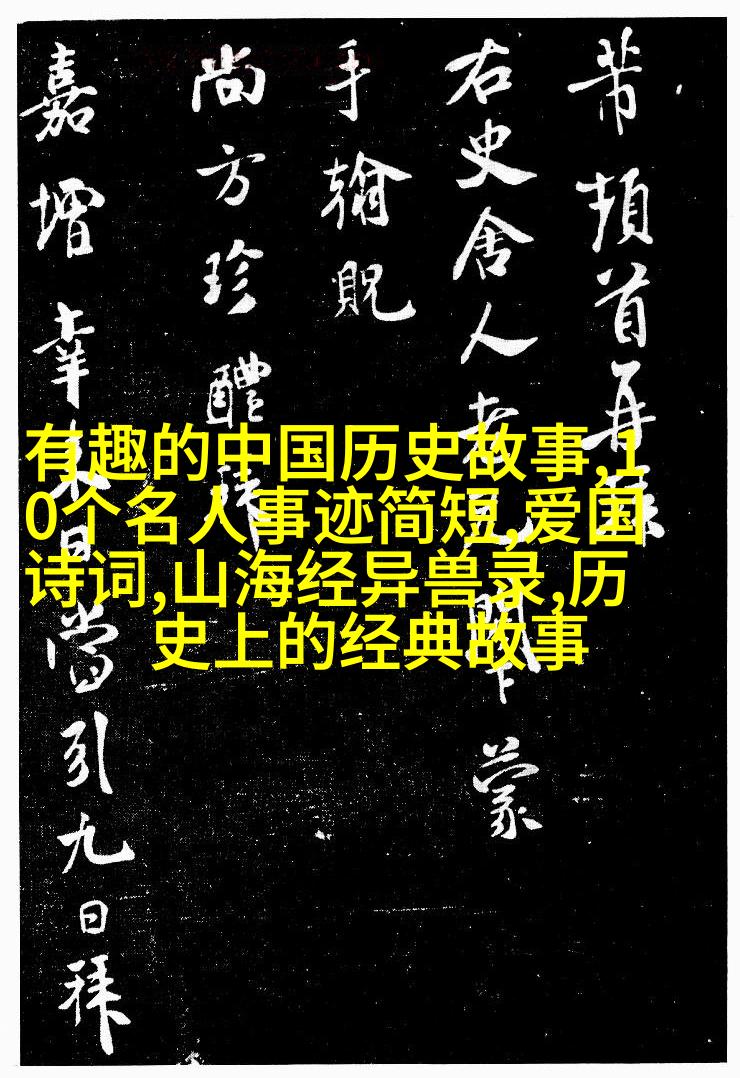 芾頓首再拜
右史舍人老兄閤下蒙
手翰貺
尚方珍醴
嘉增幸來日當引九日拜
有趣的中国历史故事,1
0个名人事迹简短,爱国
诗词,山海经异兽录,历
史上的经典故事